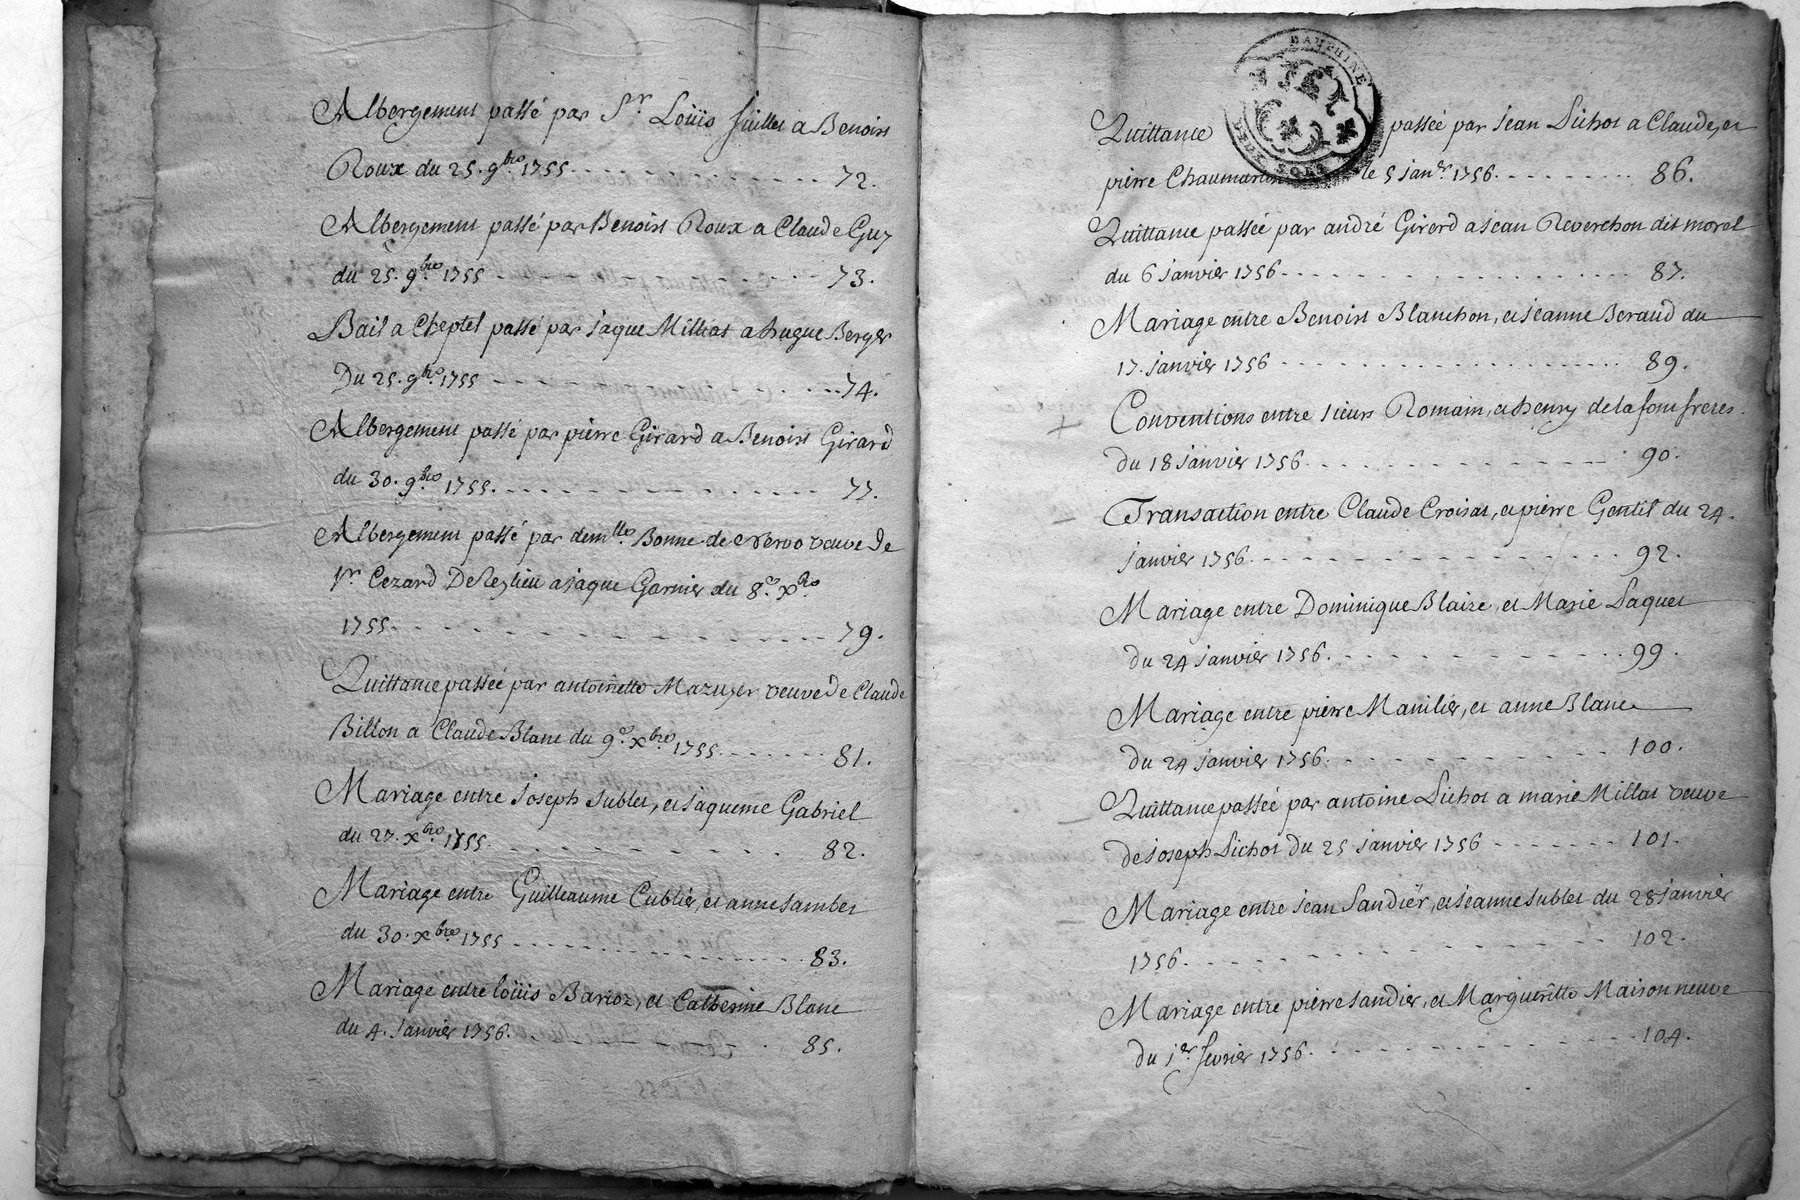 Albergement passé par Sr. Loüis Juillet a Benoist
Roux du 25. 9bre. 1755 72.
Albergement passé par Benoist Roux a Claude Guy
du 25. 9bre 1755 73.
Bail a Cheptel passé par Jaque Milliat a hugue Berger
Du 25. 9bre. 1755 74.
Albergement passé par pierre Girard a Benoist Girard
du 30. 9bre 1755. 77.
Albergement passé par demlle. Bonne de Nervo veuve de
Sr. Cezard a Jaque Garnier du 8e. xbre
1755. 79.
Quittance passée par antoinette Mazuyer veuve de Claude
Billon a Claude Blanc du 9e. xbre. 1755. 81.
Mariage entre Joseph Sublet, et Jaqueme Gabriel
du 27. xbre. 1755. 82.
Mariage entre Guilleaume Cublier, et anne Jambet
du 30. xbre 1755 83.
Mariage entre loüis Barioz, et Catherine Blanc
du 4. Janvier 1756. 85.
DAUPHINE
DEUX SOLS
Quittance passée par Jean Lichot a Claude, et
pierre le 5 Janer. 1756. 86.
Quittance passée par andré Girerd a Jean Reverchon dit morel
du 6 Janvier 1756 87.
Mariage entre Benoist Blanchon, et Jeanne Beraud du
17. Janvier 1756 89.
+ Conventions entre sieurs Romain, et henry de la font freres.
Du 18 Janvier 1756. 90.
Transaction entre Claude Croisat, et pierre Gentil du 24.
Janvier 1756. 92.
Mariage entre Dominique Blaize, et Marie Paquet
Du 24 Janvier 1756. 99.
Mariage entre pierre Manilier, et anne Blanc
Du 24 Janvier 1756. 100.
Quittance passée par antoine Lichot a marie Millat veuve
de Joseph Lichot du 25 Janvier 1756 101.
Mariage entre Jean Sandier, et Jeanne Sublet du 28 Janvier
1756. 102.
Mariage entre pierre Sandier, et Margueritte Maisonneuve
Du 1er fevrier 1756. 104.